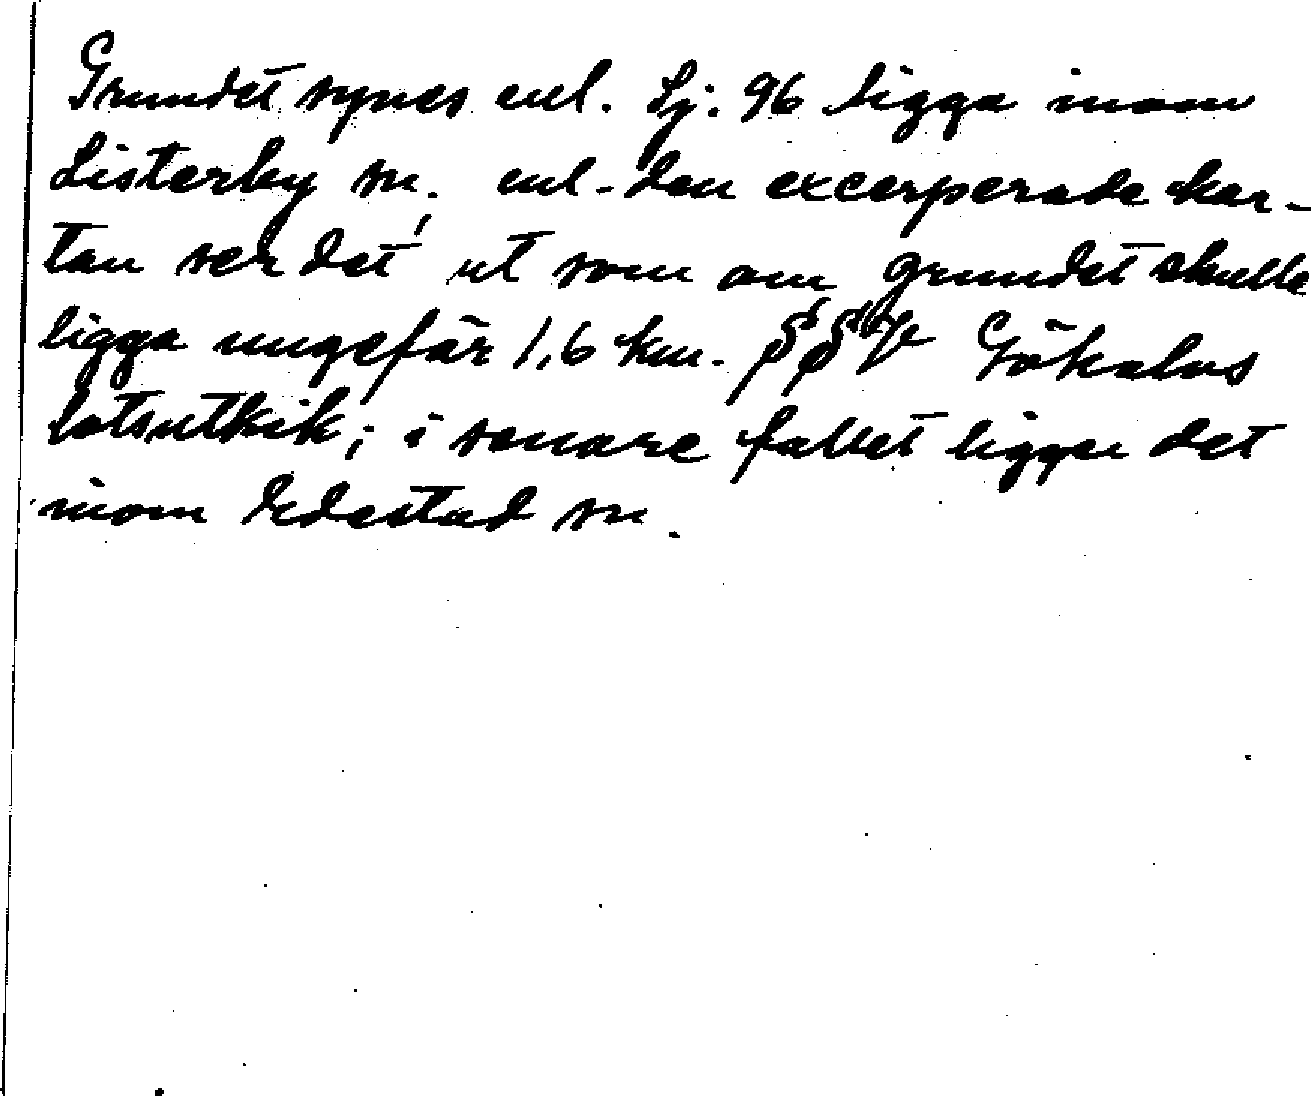 Grundet synes enl. Sj. 96 ligga inom
Listerby sn, enl. den excerperade kar-
tan ser det ut som om grundet skulle
ligga ungefär 1,6 km. SSV Gökalvs
lotsutkik; i senare fallet ligger det
inom Edestad sn.